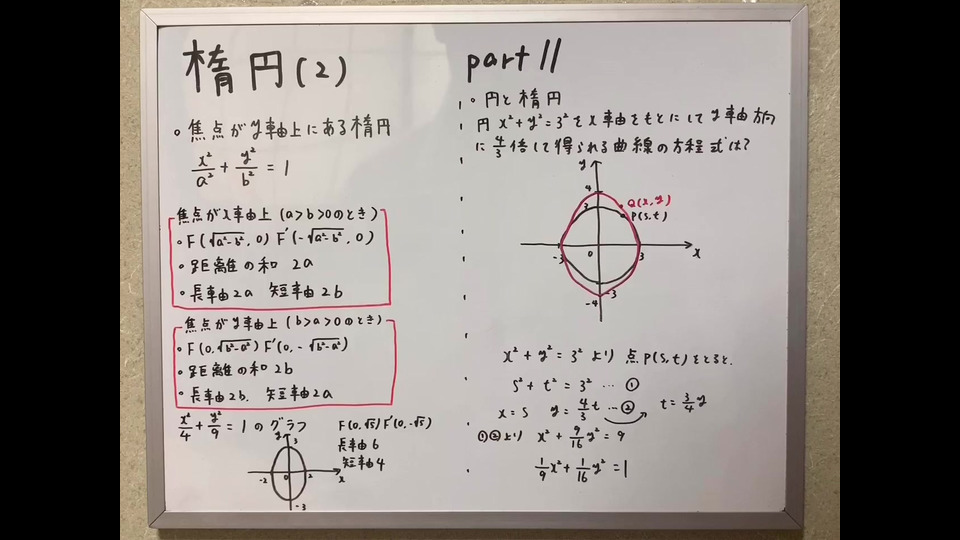 楕円(2)
part 11
。焦点がy軸上にある楕円
x²/a² + y²/b² = 1
焦点がx軸上 (a>b>0のとき)
・F(√a²-b², 0) F'(-√a²-b², 0)
・距離の和 2a
・長軸2a 短軸2b
焦点がy軸上 (b>a>0のとき)
・F(0, √b²-a²) F'(0, -√b²-a²)
・距離の和 2b
・長軸2b. 短軸2a
x²/4 + y²/9 = 1 のグラフ
F(0,√5) F'(0,-√5)
長軸6
短軸4
y
3
-2 0 2 x
-3
。円と楕円
円 x²+y²=3² をx軸をもとにしてy軸方向
に 4/3 倍して得られる曲線の方程式は?
y
4
3
Q(x,y)
P(s,t)
-3 0 3 x
-3
-4
x²+y²=3² より 点P(s,t)をとると.
s²+t²=3² … ①
x=s y=4/3 t … ② t=3/4 y
①②より x²+9/16 y²=9
1/9 x²+1/16 y²=1